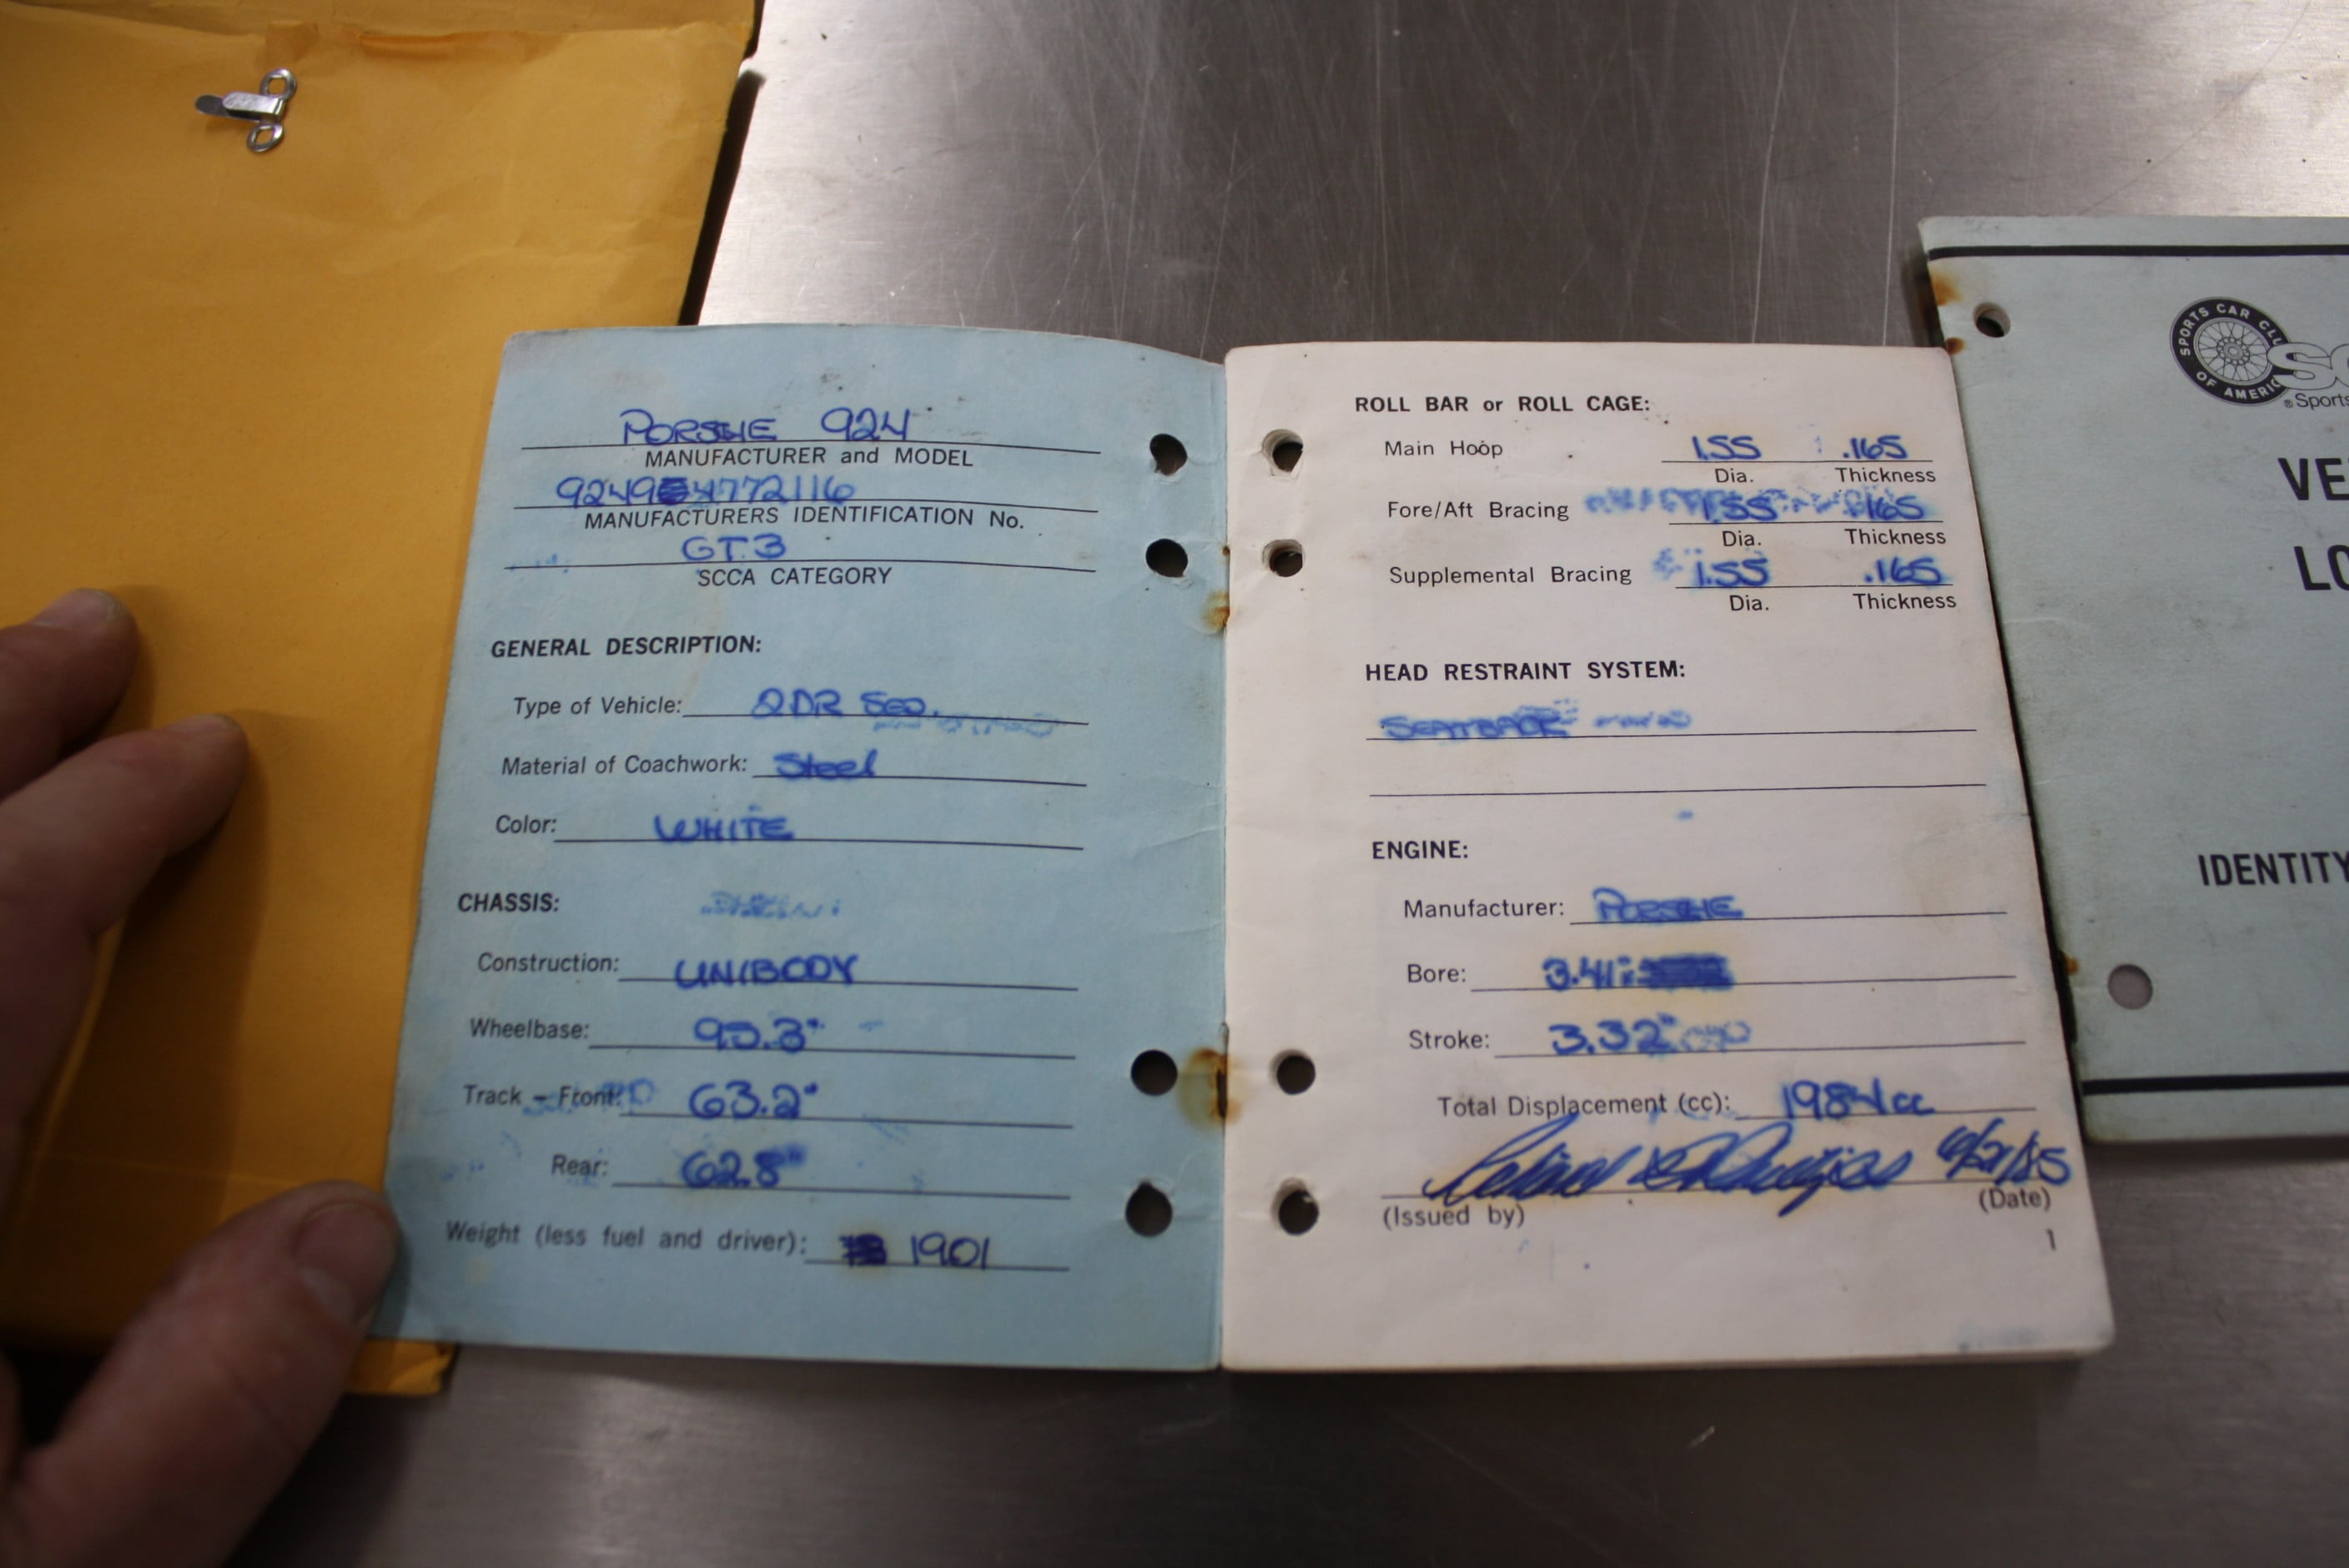 PORSHE 924
MANUFACTURER and MODEL
MANUFACTURERS IDENTIFICATION No.
GT3
SCCA CATEGORY
GENERAL DESCRIPTION:
Type of Vehicle: 2DR SED.
Material of Coachwork: Steel
Color: WHITE
CHASSIS:
Construction: UNIBODY
Wheelbase:
Track – Front: 63.2"
Rear: 62.8"
Weight (less fuel and driver): 1901
ROLL BAR or ROLL CAGE:
Main Hoop 1.55 .165
Dia. Thickness
Fore/Aft Bracing 1.55 .165
Dia. Thickness
Supplemental Bracing 1.55 .165
Dia. Thickness
HEAD RESTRAINT SYSTEM:
SEATBACK
ENGINE:
Manufacturer: PORSHE
Bore: 3.41
Stroke: 3.32"
Total Displacement (cc): 1984cc
(Issued by) (Date)
1
SPORTS CAR CLU
OF AMERIC
® Sports
VE
LO
IDENTITY